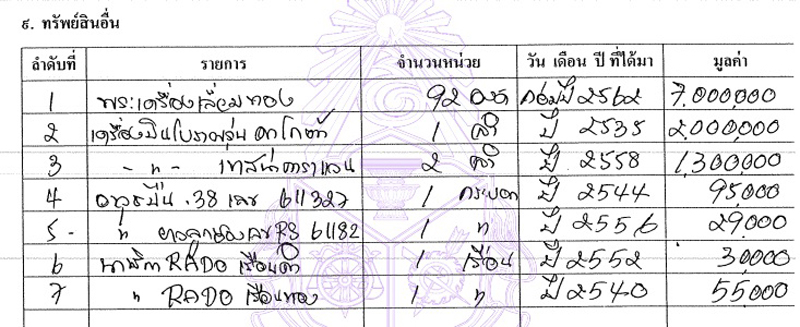 ๙. ทรัพย์สินอื่น
ลำดับที่ รายการ จำนวนหน่วย วัน เดือน ปี ที่ได้มา มูลค่า
1 พระเครื่องเลี่ยมทอง 92 องค์ ก่อนปี 2562 7,000,000
2 เครื่องบินโบราณรุ่น ดาโกต้า 1 ลำ ปี 2535 2,000,000
3 - " - 2 ลำ ปี 2558 1,300,000
4 อาวุธปืน .38 เลข 611327 1 กระบอก ปี 2544 95,000
5 - " เลข RS 61182 1 " ปี 2556 29,000
6 นาฬิกา RADO เรือนดำ 1 เรือน ปี 2552 30,000
7 " RADO เรือนทอง 1 " ปี 2540 55,000